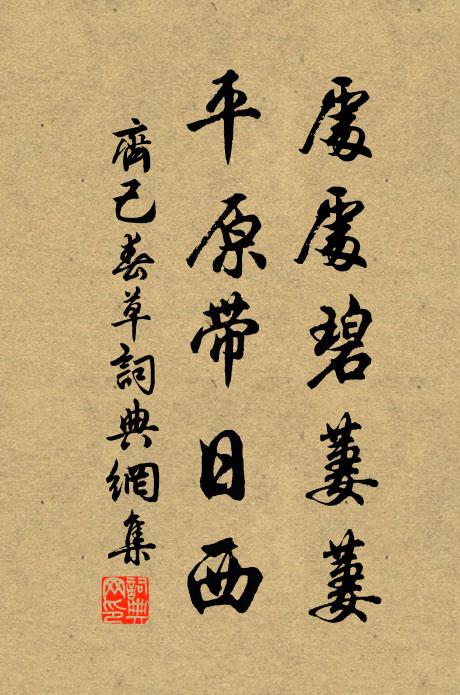 處處碧萋萋
平原帶日西
齊己春草詞典網集
詞典网印